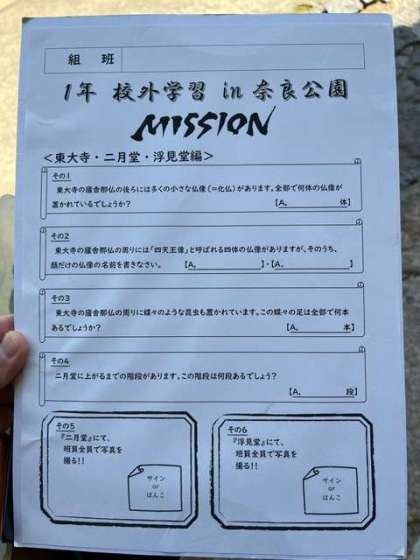 組 班
1年 校外学習 in 奈良公園
MISSION
＜東大寺・二月堂・浮見堂編＞
その1
東大寺の廬舎那仏の後ろには多くの小さな仏像（＝化仏）があります。全部で何体の仏像が
置かれているでしょうか？ 【A. 体】
その2
東大寺の廬舎那仏の周りには「四天王像」と呼ばれる四体の仏像がありますが、そのうち、
顔だけの仏像の名前を書きなさい。 【A. 】・【A. 】
その3
東大寺の廬舎那仏の周りに蝶々のような昆虫も置かれています。この蝶々の足は全部で何本
あるでしょうか？ 【A. 本】
その4
二月堂に上がるまでの階段があります。この階段は何段あるでしょう？
【A. 段】
その5
『二月堂』にて、
班員全員で写真を
撮る！！
サイン
or
はんこ
その6
『浮見堂』にて、
班員全員で写真を
撮る！！
サイン
or
はんこ